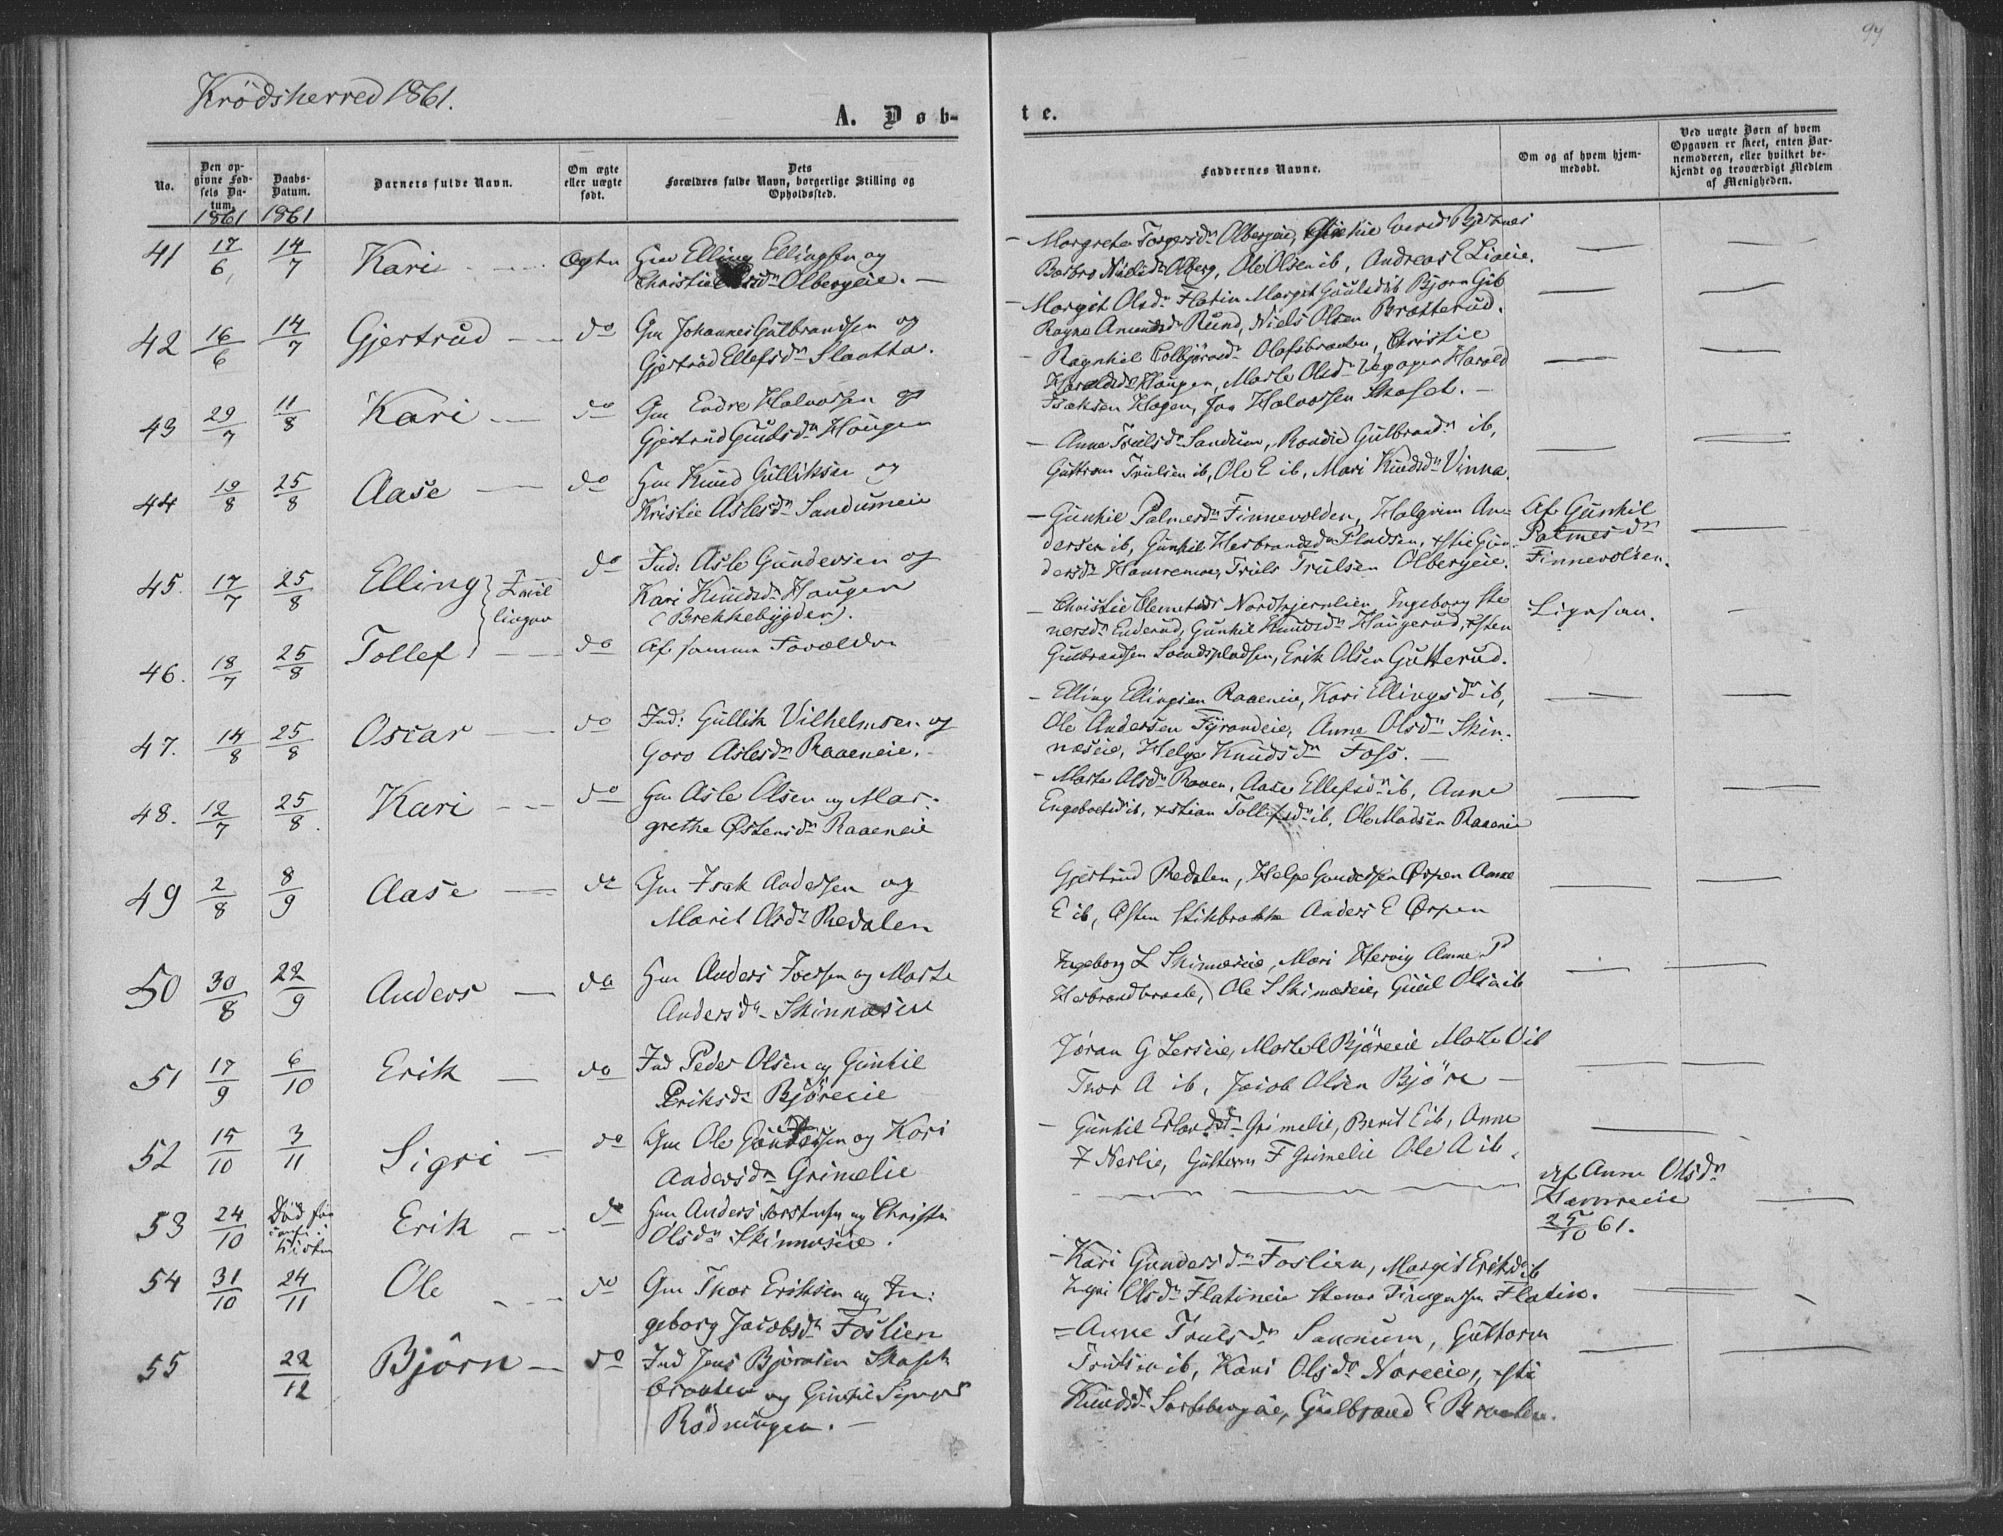 97
Krödsherred 1861.
A. Døb-
te.
No.
Den op-
givne Fød-
sels Da-
tum.
1861
Daabs-
Datum.
1861
Barnets fulde Navn.
Om ægte
eller uægte
født.
Dets
Forældres fulde Navn, borgerlige Stilling og
Opholdssted.
Faddernes Navne.
Om og af hvem hjem-
medøbt.
Ved uægte Børn af hvem
Opgaven er skeet, enten Bar-
nemoderen, eller hvilket be-
kjendt og troværdigt Medlem
af Menigheden.
41 17/6 14/7 Kari Ægte Gm Elling Ellingsen og
Christie Olsdn Olbergeie. —
— Margrete Torgersdn Olbergeie,
Barbro Nielsdn Olberg, Ole Olsen ib, Andreas E Lieeie.
42 16/6 14/7 Gjertrud — do Gm Johannes Gulbrandsen og
Gjertrud Ellefsdn Slaatta.
— Margit Olsdn Flatin Margit Paulsdn ib Bjørn G ib
Ragne Amundsd Rund, Niels Olsen Bratterud.
43 29/7 11/8 Kari — do Gm Endre Halvorsen og
Gjertrud Gundsdn Haugen
— Ragnhil Colbjörnsdn Olafsbraaten, Christie
Haraldsd Haugen, Marte Olsdn Harald
Isaksen Hagen, Joa Halvorsen Skaset. —
44 19/8 25/8 Aase — do Gm Knud Gulliksen og
Kristie Aslesdn Sandumeie
— Anne Trulsdn Sandum, Randie Gulbrandn ib,
Guttorm Trulsen ib, Ole E ib, Mari Knudsdn Vinne.
45. 17/7 25/8 Elling } Tvil
lingar do Ind: Asle Gundersen og
Kari Knudsdn Haugen
(Brekkebygden).
— Gunhil Palmesdn Finnevolden, Halgrim An-
dersen ib, Gunhil Herbrandsdn Pladsen, Xstie Gun-
dersdn Hamremoe, Truls Trulsen Olbergeie.
Af Gunhil
Palmesdn
Finnevolden.
46. 18/7 25/8 Tollef — do Af samme Forældre
— Christie Olemstads Nordhjernlien, Ingeborg Ste
nersdn Enderud, Gunhil Knudsdn Haugerud, Xsten
Gulbrandsen Svendspladsen, Erik Olsen Gutterud.
Ligesaa.
47. 14/8 25/8 Oscar — do Ind: Gullik Vilhelmsen og
Goro Aslesdn Raaeneie.
— Elling Ellingsen Raaeneie, Kari Ellingsdn ib,
Ole Andersen Fyrandeie, Anne Olsdn Skin-
næseie, Helge Knudsdn Foss. —
48. 12/7 25/8. Kari — do Gm Asle Olsen og Mar:
grethe Østensdn Raaeneie
— Marte Olsdn Raaen, Aase Ellefsdn ib, Anne
Engebretsd ib, Xstian Tollefsdn ib, Ole Madsen Raaeneie
49 2/8 8/9 Aase — do Gm Isak Andersen og
Marit Olsdn Redalen
Gjertrud Redalen, Helge Gundersen Ørpen Anne
E ib, Østen Stikbrakke Anders E Ørpen
50 30/8 22/9 Anders — do Gm Anders Iversen og Marte
Andersdn Skinnæseie
Ingeborg L Skinnæseie, Mari Hervig Anne P
Herbrandbraate, Ole S Skinnæseie, Guul Olsen ib
51 17/9 6/10 Erik — do Ind Peder Olsen og Gunhil
Eriksdn Björeeie
Jöran G Lerseie, Marte A Björeeie Marte O ib
Thor A ib, Jacob Olsen Björe —
52 15/10 3/11 Sigri — do Gm Ole Gundersen og Kari
Andersdn Grimelie
— Gunhil Erlandsdn Grimelie, Berit E ib, Anne
F Neslie, Guttorm F Grimelie Ole A ib.
53 24/10 Död før
Kisten Erik — do Gm Anders Torstensen og Christie
Olsdn Skinnæseie.
Af Anne Olsdn
Hamreeie
25/10 61.
54 31/10 24/11 Ole — do Gm Thor Eriksen og In:
geborg Jacobsdn Foslien
— Kari Gundersdn Foslien, Margit Eriksd ib
Ingri Olsdn Flatineie Stener Flatin.
55 22/12 Bjørn — do Ind Jens Bjørnsen Skaset
braaten og Gunhil
Rödningen. —
= Anne Trulsdn Sandum, Guttorm
Trulsen ib, Kari Olsdn Noreeie, Xsti
Knudsdn Sorbbergeie, Gulbrand E Braaten.